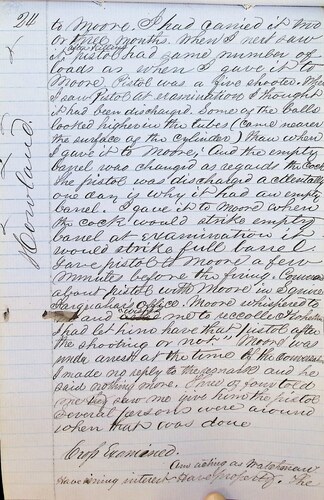 24
Howland.
to Moore. I had carried it two
or three months. When I next saw
after killing
pistol had same number of
loads as when I gave it to
Moore. Pistol was a five shooter. When
I saw Pistol at examination I thought
it had been discharged. Some of the balls
looked higher in the tubes (came nearer
the surface of the cylinder) than when
I gave it to Moore. And the empty
barrel was changed as regards the cock
The pistol was discharged accidentally
one day is why it had an empty
barrel. I gave it to Moore when
the cock would strike empty
barrel at examination it
would strike full barrel
Gave pistol to Moore a few
minutes before the firing. Conversed
about pistol with Moore in Squire
Office. Moore whispered to
me and me to recollect whether
I had let him have that pistol after
the shooting or not" Moore was
under arrest at the time of the conversation
I made no reply to the remark and he
said nothing more. Three or four told
me they saw me give him the pistol
Several persons were around
when that was done
Cross Examined.
Am acting as Watchman
Have mining interest Have property. The